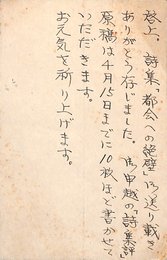 啓上、詩集「都会への絶壁」お送り戴き
ありがとう存じました。お申越の「詩集評」
原稿は4月15日までに10枚ほど書かせて
いただきます。
お元気を祈り上げます。